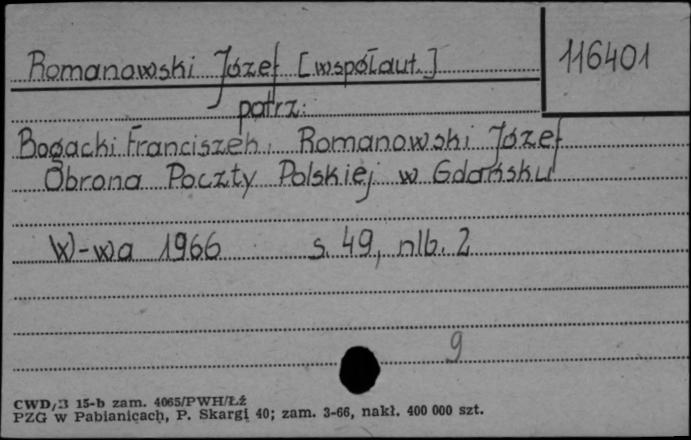 Romanowski Józef [współaut.]
116401
patrz:
Bogacki Franciszek, Romanowski Józef
Obrona Poczty Polskiej w Gdańsku
W-wa 1966 s. 49, nlb. 2
9
CWD/3 15-b zam. 4065/PWH/Łż
PZG w Pabianicach, P. Skargi 40; zam. 3-66, nakł. 400 000 szt.